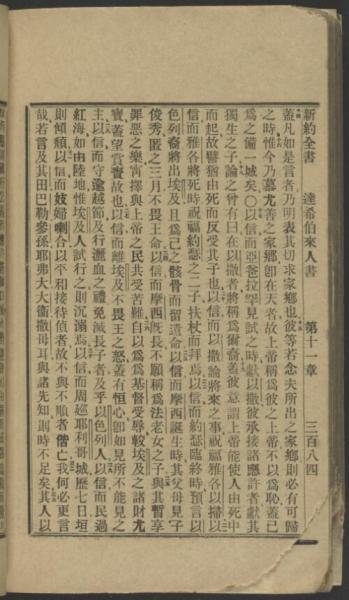 新約全書　達希伯來人書　第十一章　三百八四
蓋凡如是言者乃明表其切求家鄉也彼等若念夫所出之家鄉則必有可歸
之時惟今乃慕尤善之家鄉卽在天者故上帝稱爲彼之上帝不以爲恥蓋已
爲之備一城矣〇以信而亞伯拉罕見試之時獻以撒彼承接諸應許者獻其
獨生之子論之曾有曰在以撒者將稱爲爾裔蓋彼意謂上帝能使人由死中
而起故譬猶由死而反受其子也以信而以撒論將來之事祝福雅各以掃以
信而雅各將死時祝福約瑟之二子扶杖而拜焉以信而約瑟臨終時預言以
色列裔將出埃及且爲己之骸骨而留遺命以信而摩西誕生時其父母見子
俊秀匿之三月不畏王命以信而摩西旣長不願稱爲法老女之子與其暫享
罪惡之樂寗擇與上帝之民共受苦難自以爲爲基督受辱較埃及之諸財尤
寶蓋望賞賚故也以信而離埃及不畏王之怒蓋有恒心卽如見所不能見之
主以信而守逾越節及行灑血之禮免滅長子者及乎以色列人以信而民過
紅海如由陸地惟埃及人試行之則沉溺焉以信而周廻耶利哥城歷七日垣
則傾頹以信而妓婦喇合以平和接待偵者故不與不順者偕亡我何必更言
哉若言及其田巴勒參孫耶弗大大衞撒母耳與諸先知則時不足矣其人以